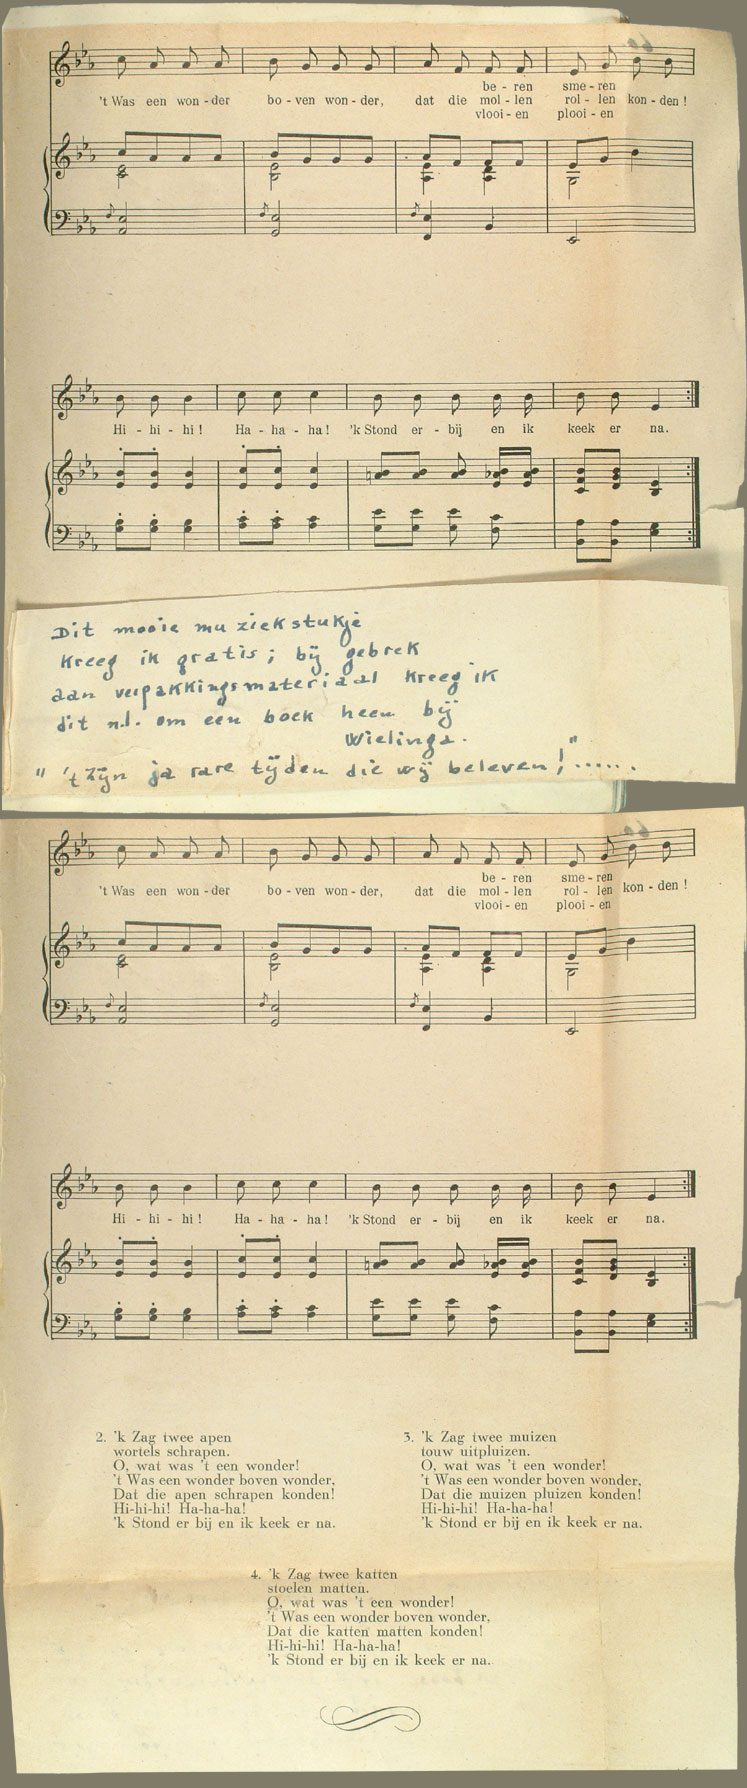 be - ren sme - ren
't Was een won - der bo - ven won - der, dat die mol - len rol - len kon - den !
vlooi - en plooi - en
Hi - hi - hi ! Ha - ha - ha ! 'k Stond er - bij en ik keek er na.
Dit mooie muziekstukje
Kreeg ik gratis; bij gebrek
aan verpakkingsmateriaal Kreeg ik
dit n.l. om een boek heen bij
Wielinga.
" 't Zijn ja rare tijden die wij beleven!"......
be - ren sme - ren
't Was een won - der bo - ven won - der, dat die mol - len rol - len kon - den !
vlooi - en plooi - en
Hi - hi - hi ! Ha - ha - ha ! 'k Stond er - bij en ik keek er na.
2. 'k Zag twee apen
wortels schrapen.
O, wat was 't een wonder!
't Was een wonder boven wonder,
Dat die apen schrapen konden!
Hi-hi-hi! Ha-ha-ha!
'k Stond er bij en ik keek er na.
3. 'k Zag twee muizen
touw uitpluizen.
O, wat was 't een wonder!
't Was een wonder boven wonder,
Dat die muizen pluizen konden!
Hi-hi-hi! Ha-ha-ha!
'k Stond er bij en ik keek er na.
4. 'k Zag twee katten
stoelen matten.
O, wat was 't een wonder!
't Was een wonder boven wonder,
Dat die katten matten konden!
Hi-hi-hi! Ha-ha-ha!
'k Stond er bij en ik keek er na.